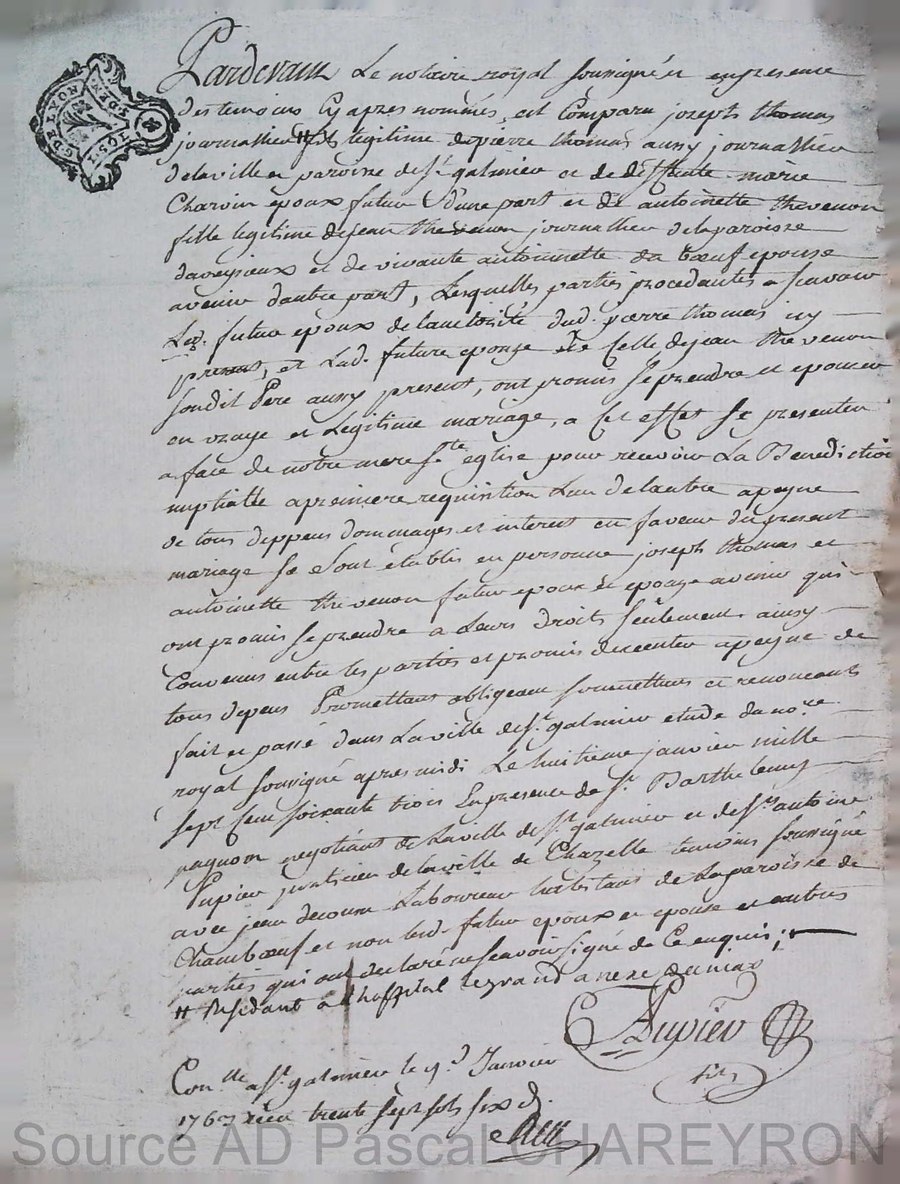 Pardevant Le notaire royal soussigné et en presence
des temoins Cy apres nommés, est Comparu joseph thomas
journallier # fils legitime de pierre thomas aussy journallier
de la ville et paroisse de St. galmier et de deffunte marie
Charvin epoux futur d'une part et de antoinette thevenon
fille legitime de jean thevenon journallier de la paroisse
daveyzieux et de vivante antoinette du bœuf epouse
avenir dautre part, Lesquelles parties procedantes a scavoir
Led. futur epoux de lautorité dud. pierre thomas icy
present, et Lad. future epouze de Celle de jean thevenon
sondit Pere aussy present, ont promis se prendre et epouser
en vraye et Legitime mariage, a Cet effet se presenter
a face de notre mere Ste eglise pour recevoir La Benediction
nuptialle a premiere requisition Lun de lautre apeyne
de tous deppens dommages et interest en faveur du present
mariage se sont établis en personne joseph thomas et
antoinette thevenon futur epoux et epouze avenir qui
ont promis se prendre a Leurs droits seulement ainsy
Convenus entre les parties et promis dexecuter apeyne de
tous depens Promettans obligeans soumettans et renoncants
fait et passé dans La ville de St. galmier etude du nore.
royal soussigné apres midi Le huitieme janvier mille
sept cent soixante trois En presence de Sr. Barthelemy
negotiant de la ville de St. galmier et de Sr. antoine
Pupier praticien de la ville de Chazelle temoins soussigné
avec jean Laboureur habitans de La paroisse de
Chambœuf et non lesd. futur epoux et epouse et autres
parties qui ont declaré ne scavoir signé de Ce enquis;
# Residant a Lhoppital le grand
Pupier
Conlle a St. galmier le 9 Janvier
1763 recu trente sept sols six d.
Source AD Pascal CHAREYRON